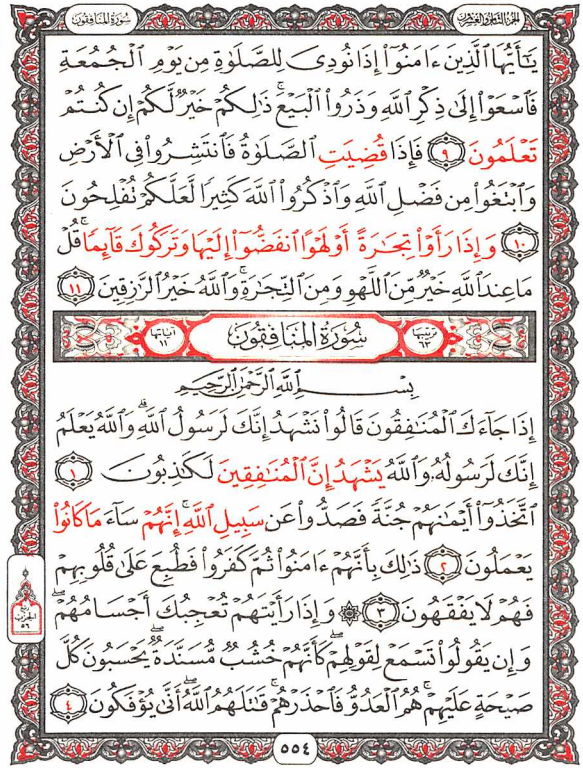 الجزء الثامن والعشرون
سُورَةُ المُنَافِقُون
يَٰٓأَيُّهَا ٱلَّذِينَ ءَامَنُوٓا۟ إِذَا نُودِىَ لِلصَّلَوٰةِ مِن يَوْمِ ٱلْجُمُعَةِ
فَٱسْعَوْا۟ إِلَىٰ ذِكْرِ ٱللَّهِ وَذَرُوا۟ ٱلْبَيْعَ ۚ ذَٰلِكُمْ خَيْرٌ لَّكُمْ إِن كُنتُمْ
تَعْلَمُونَ ٩ فَإِذَا قُضِيَتِ ٱلصَّلَوٰةُ فَٱنتَشِرُوا۟ فِى ٱلْأَرْضِ
وَٱبْتَغُوا۟ مِن فَضْلِ ٱللَّهِ وَٱذْكُرُوا۟ ٱللَّهَ كَثِيرًا لَّعَلَّكُمْ تُفْلِحُونَ
١٠ وَإِذَا رَأَوْا۟ تِجَٰرَةً أَوْ لَهْوًا ٱنفَضُّوٓا۟ إِلَيْهَا وَتَرَكُوكَ قَآئِمًا ۚ قُلْ
مَا عِندَ ٱللَّهِ خَيْرٌ مِّنَ ٱللَّهْوِ وَمِنَ ٱلتِّجَٰرَةِ ۚ وَٱللَّهُ خَيْرُ ٱلرَّٰزِقِينَ ١١
ترتيبها ٦٣ سُورَةُ المُنَافِقُون آياتها ١١
بِسْمِ ٱللَّهِ ٱلرَّحْمَٰنِ ٱلرَّحِيمِ
إِذَا جَآءَكَ ٱلْمُنَٰفِقُونَ قَالُوا۟ نَشْهَدُ إِنَّكَ لَرَسُولُ ٱللَّهِ ۗ وَٱللَّهُ يَعْلَمُ
إِنَّكَ لَرَسُولُهُۥ وَٱللَّهُ يَشْهَدُ إِنَّ ٱلْمُنَٰفِقِينَ لَكَٰذِبُونَ ١
ٱتَّخَذُوٓا۟ أَيْمَٰنَهُمْ جُنَّةً فَصَدُّوا۟ عَن سَبِيلِ ٱللَّهِ ۚ إِنَّهُمْ سَآءَ مَا كَانُوا۟
يَعْمَلُونَ ٢ ذَٰلِكَ بِأَنَّهُمْ ءَامَنُوا۟ ثُمَّ كَفَرُوا۟ فَطُبِعَ عَلَىٰ قُلُوبِهِمْ
فَهُمْ لَا يَفْقَهُونَ ٣ ۞ وَإِذَا رَأَيْتَهُمْ تُعْجِبُكَ أَجْسَامُهُمْ ۖ
وَإِن يَقُولُوا۟ تَسْمَعْ لِقَوْلِهِمْ ۖ كَأَنَّهُمْ خُشُبٌ مُّسَنَّدَةٌ ۖ يَحْسَبُونَ كُلَّ
صَيْحَةٍ عَلَيْهِمْ ۚ هُمُ ٱلْعَدُوُّ فَٱحْذَرْهُمْ ۚ قَٰتَلَهُمُ ٱللَّهُ ۖ أَنَّىٰ يُؤْفَكُونَ ٤
الحزب
٥٦
٥٥٤